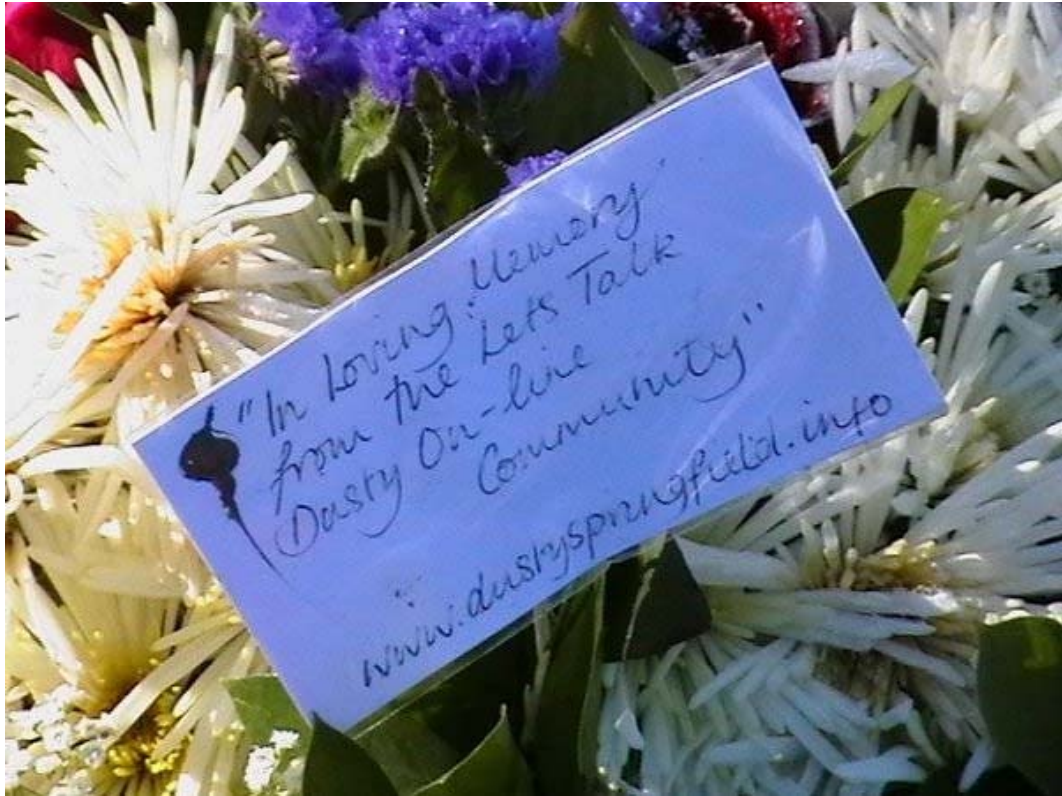 "In Loving Memory
from the Lets Talk
Dusty On-line
Community"
www.dustyspringfield.info